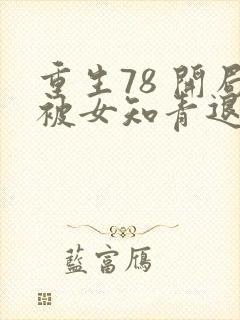 重生78 開局
被女知青退
藍富鴈